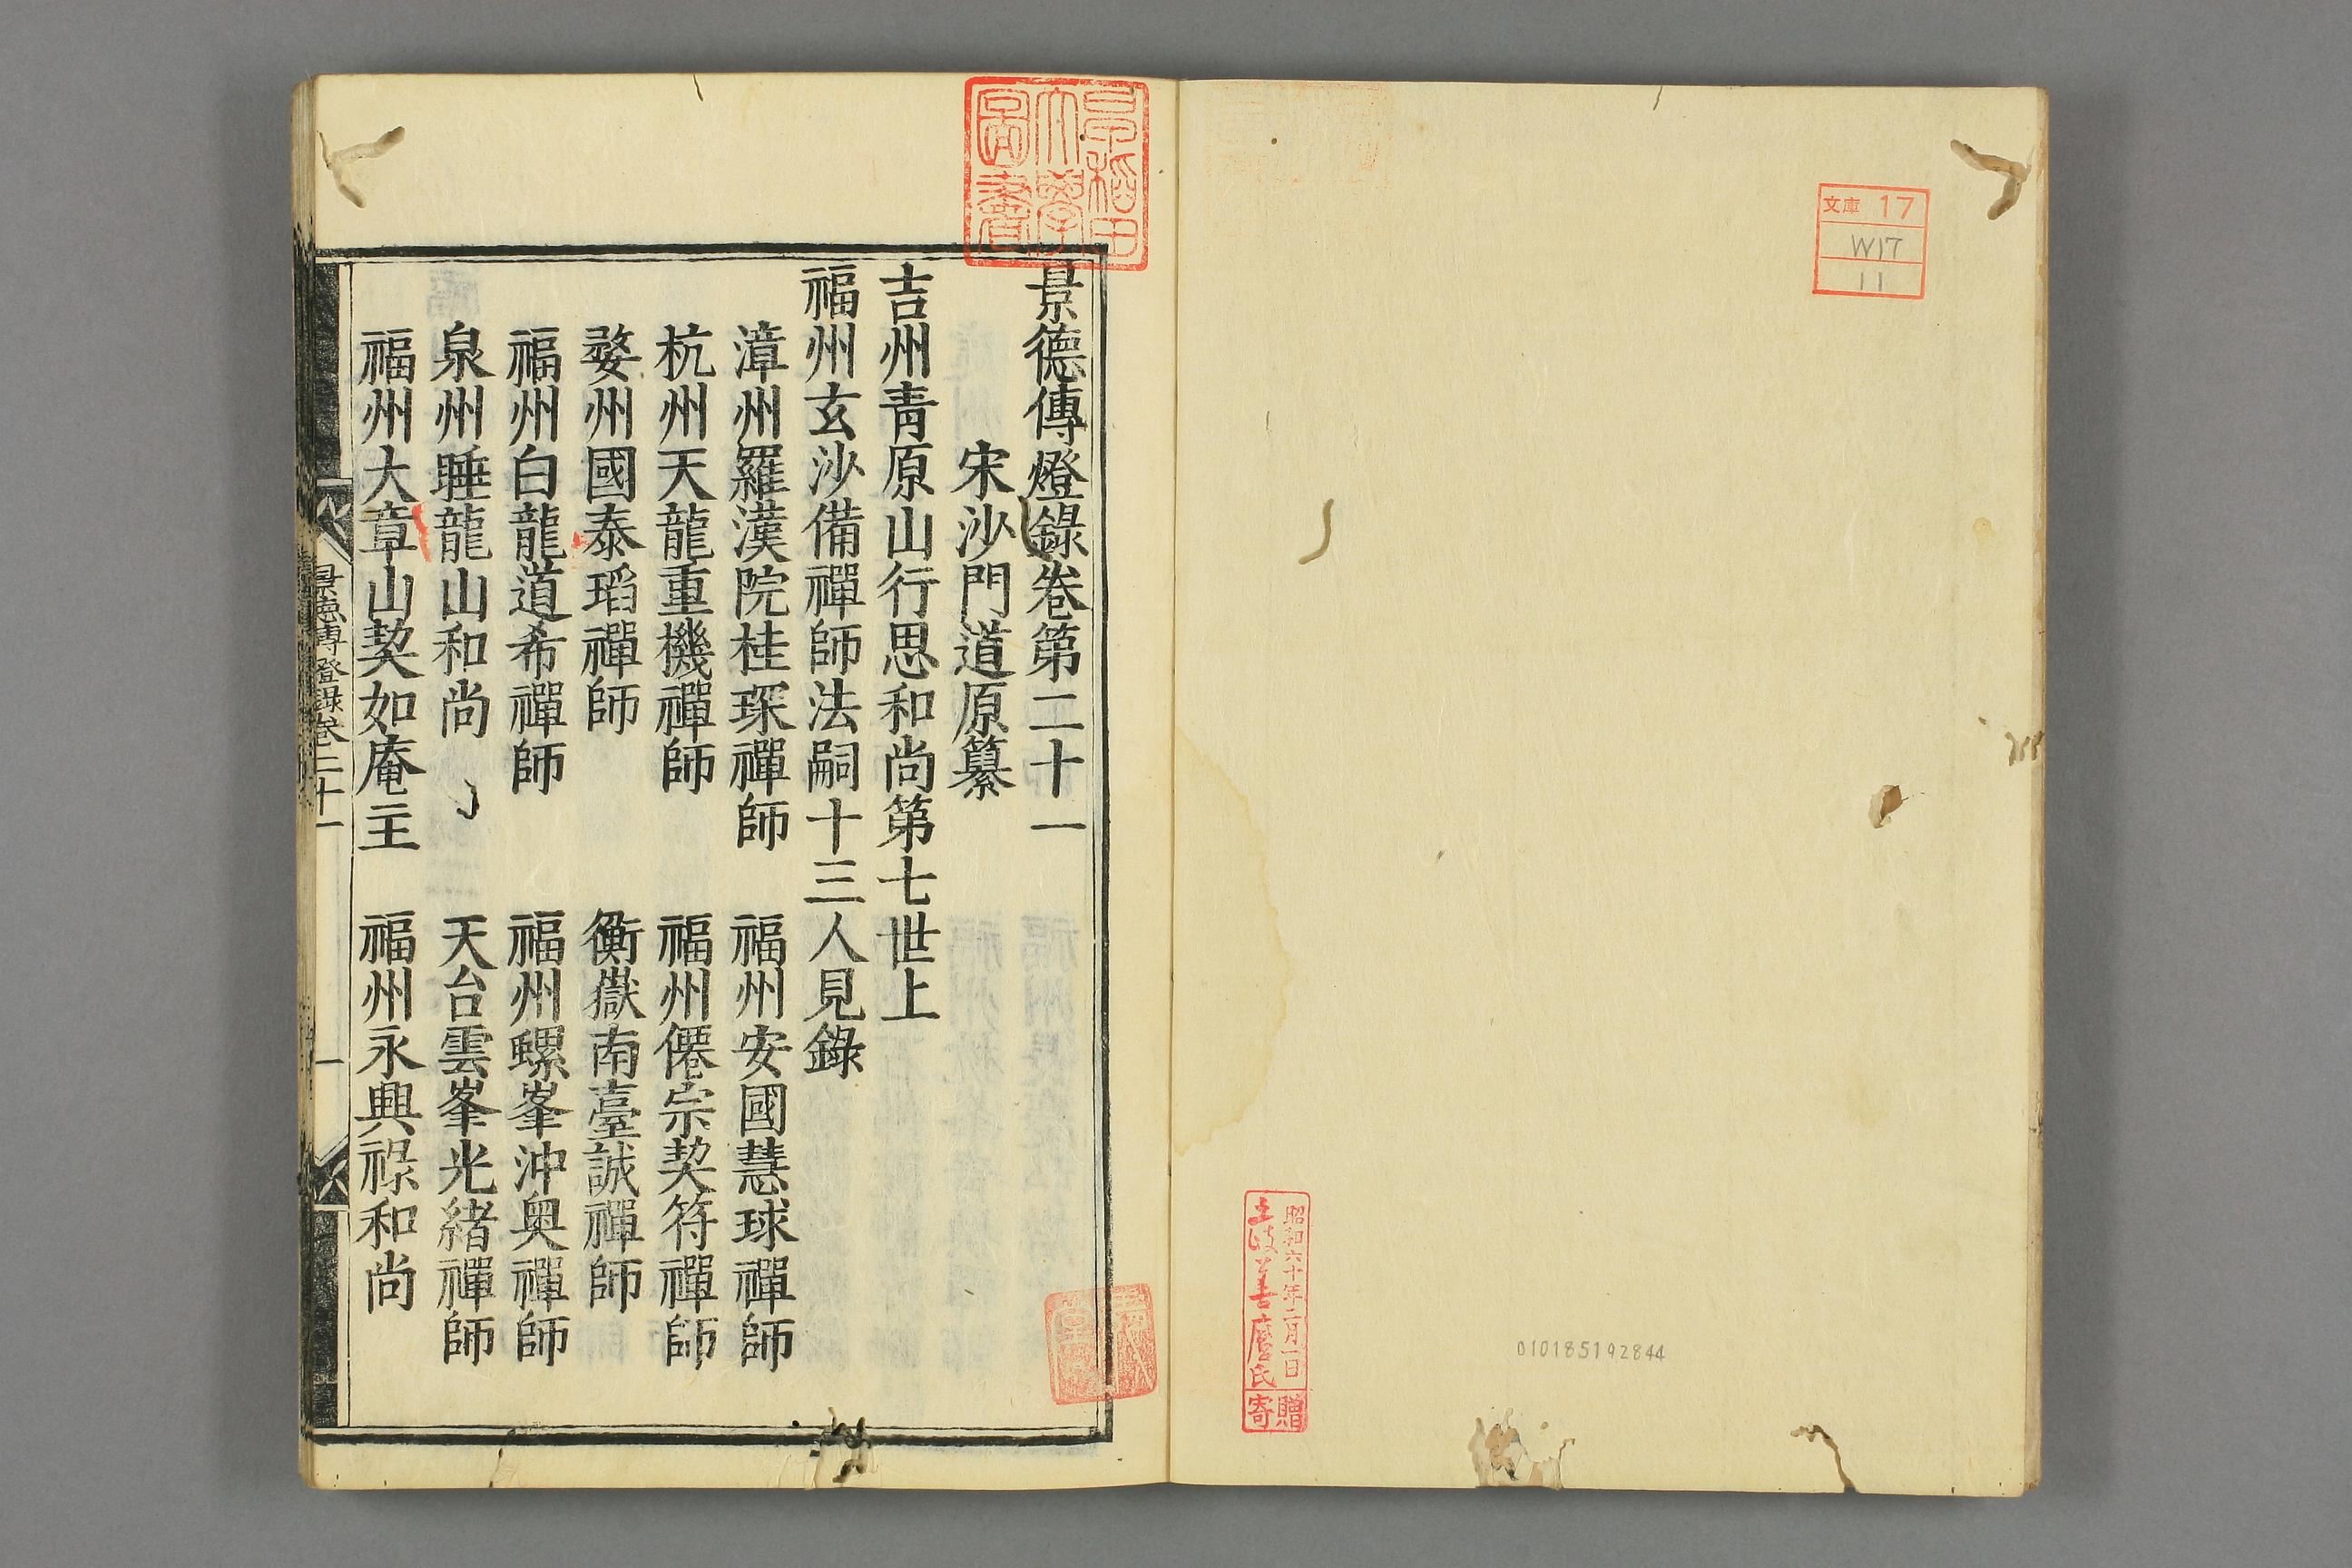 文庫 17
W17
11
昭和六十年二月一日
土岐善麿氏
寄贈
010185192844
早稲田
大學
圖書
景德傳燈錄卷第二十一
宋沙門道原纂
吉州青原山行思和尚第七世上
福州玄沙備禪師法嗣十三人見錄
漳州羅漢院桂琛禪師　福州安國慧球禪師
杭州天龍重機禪師　福州僊宗契符禪師
婺州國泰瑫禪師　衡嶽南臺誠禪師
福州白龍道希禪師　福州螺峯沖奥禪師
泉州睡龍山和尚　天台雲峯光緒禪師
福州大章山契如庵主　福州永興祿和尚
景德傳燈錄卷二十一　一